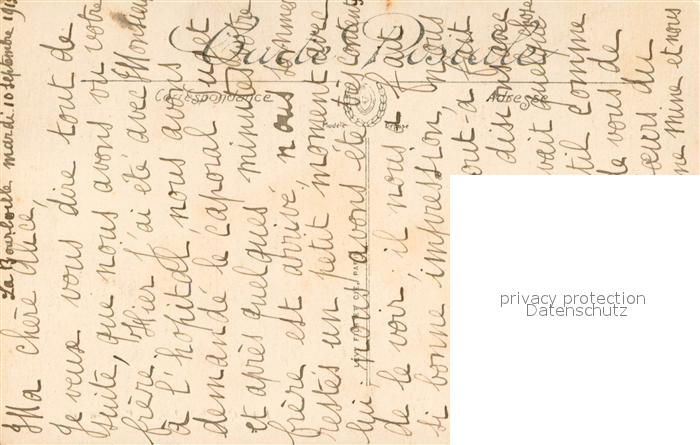 La Bourboule mardi 10 septembre 191
Ma chère Alice,
Je veux vous dire tout de
suite, que nous avons vu votre
frère. Hier j'ai été avec Monsieur
à l'hopital nous avons
demandé le caporal
et après quelques minutes votre
frère est arrivé nous sommes
restés un petit moment avec
lui nous avons été très contents
de le voir, il nous a fait
si bonne impression, nous
tout-à fait
dis avec
avait quelque chose
til comme
la vous de
ne mine et nous
Carte Postale
Correspondance
Adresse
privacy protection
Datenschutz